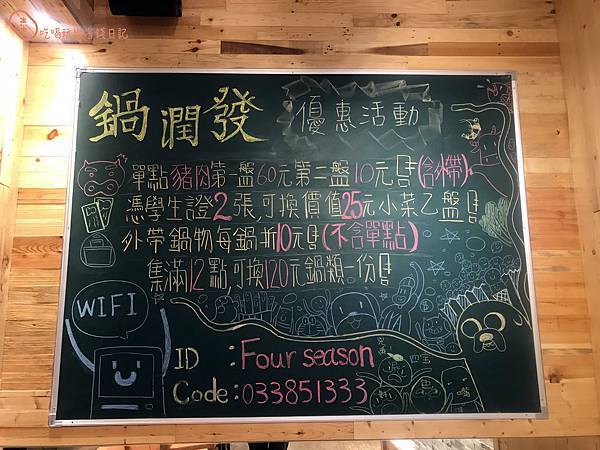 鍋潤發 優惠活動
單點豬肉第一盤60元第二盤10元!(含外帶)
憑學生證2張,可換價值25元小菜乙盤!
外帶鍋物每鍋折10元!(不含單點)
集滿12點,可換120元鍋類一份!
WIFI
ID:Four season
Code:033851333